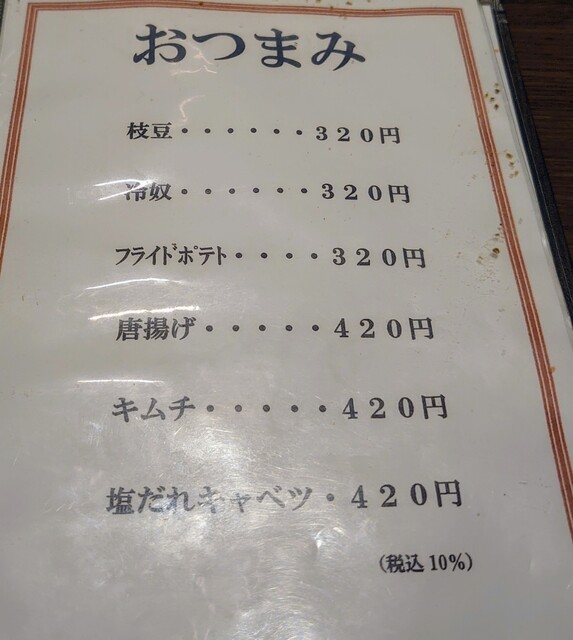 おつまみ
枝豆・・・・・・３２０円
冷奴・・・・・・３２０円
フライドポテト・・・・３２０円
唐揚げ・・・・・４２０円
キムチ・・・・・４２０円
塩だれキャベツ・４２０円
(税込 10%)